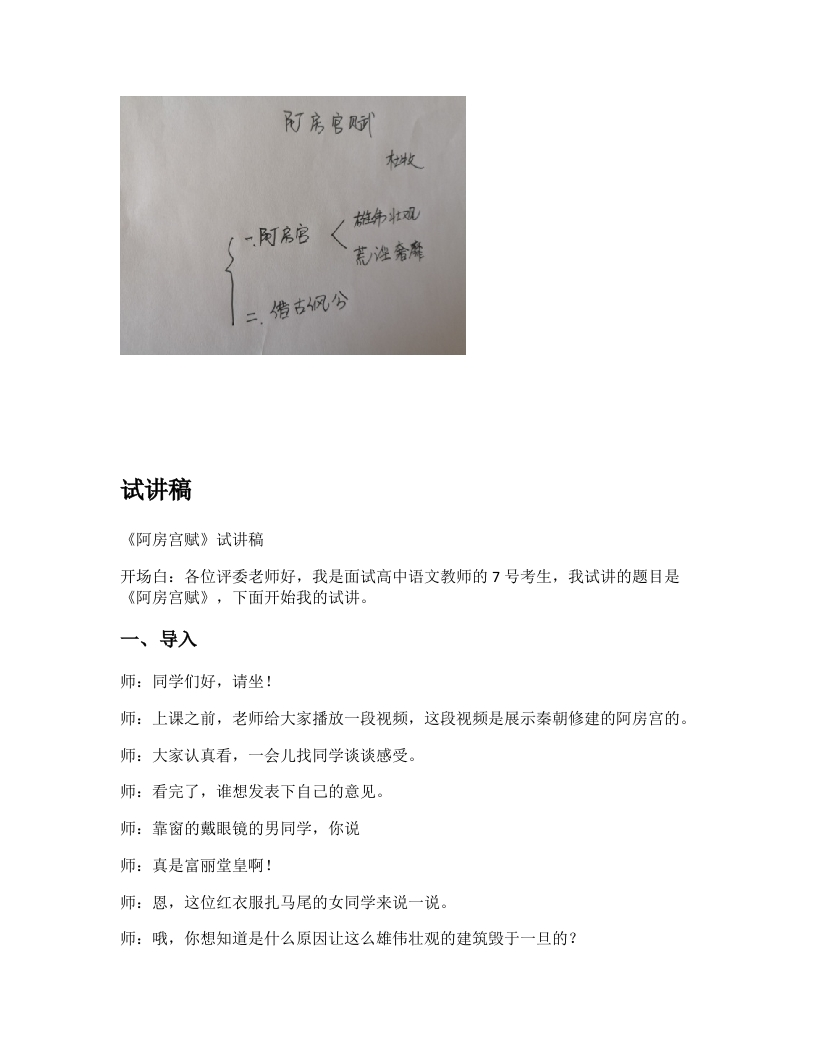 阿房宫赋
杜牧
一.阿房宫
雄伟壮观
荒淫奢靡
二.借古讽今
试讲稿
《阿房宫赋》试讲稿
开场白：各位评委老师好，我是面试高中语文教师的 7 号考生，我试讲的题目是
《阿房宫赋》，下面开始我的试讲。
一、导入
师：同学们好，请坐！
师：上课之前，老师给大家播放一段视频，这段视频是展示秦朝修建的阿房宫的。
师：大家认真看，一会儿找同学谈谈感受。
师：看完了，谁想发表下自己的意见。
师：靠窗的戴眼镜的男同学，你说
师：真是富丽堂皇啊！
师：恩，这位红衣服扎马尾的女同学来说一说。
师：哦，你想知道是什么原因让这么雄伟壮观的建筑毁于一旦的？